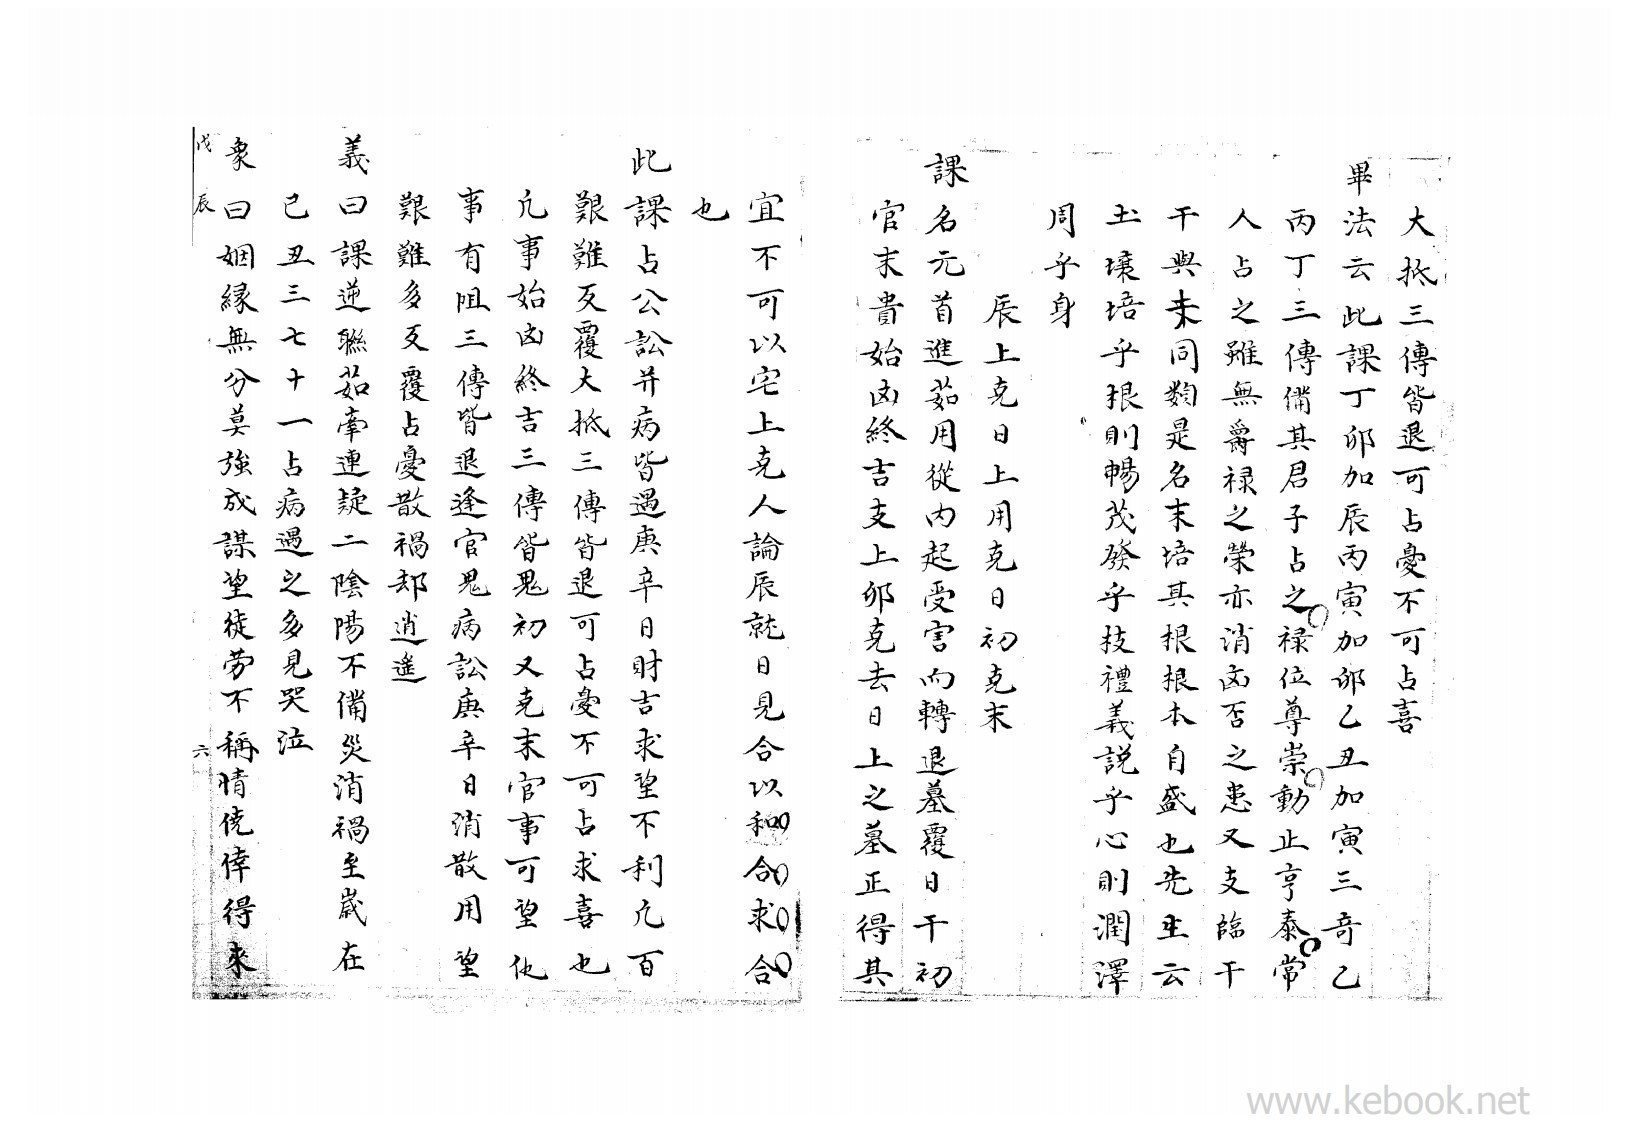 大抵三傳皆退可占憂不可占喜
畢法云此課丁卯加辰丙寅加卯乙丑加寅三奇乙
丙丁三傳備其君子占之祿位尊崇動止亨泰常
人占之雖無爵祿之榮亦消凶否之患又支臨干
干與末同類是名末培其根根本自盛也先生云
土壤培乎根則暢茂發乎技禮義説乎心則潤澤
周乎身
辰上克日上用克日初克末
課名元首進茹用從内起受害向轉退墓覆日干初
官末貴始凶終吉支上卯克去日上之墓正得其
宜不可以宅上克人論辰就日見合以和合求合
也
此課占公訟并病皆遇庚辛日財吉求望不利凢百
艱難反覆大抵三傳皆退可占憂不可占求喜也
凢事始凶終吉三傳皆鬼初又克末官事可望他
事有阻三傳皆退逢官鬼病訟庚辛日消散用望
艱難多反覆占憂散禍却逍遙
義曰課逆聯茹牽連疑二陰陽不備災消禍至歲在
己丑三七十一占病遇之多見哭泣
象曰姻緣無分莫強成謀望徒勞不稱情僥倖得來
戊辰 六
www.kebook.net